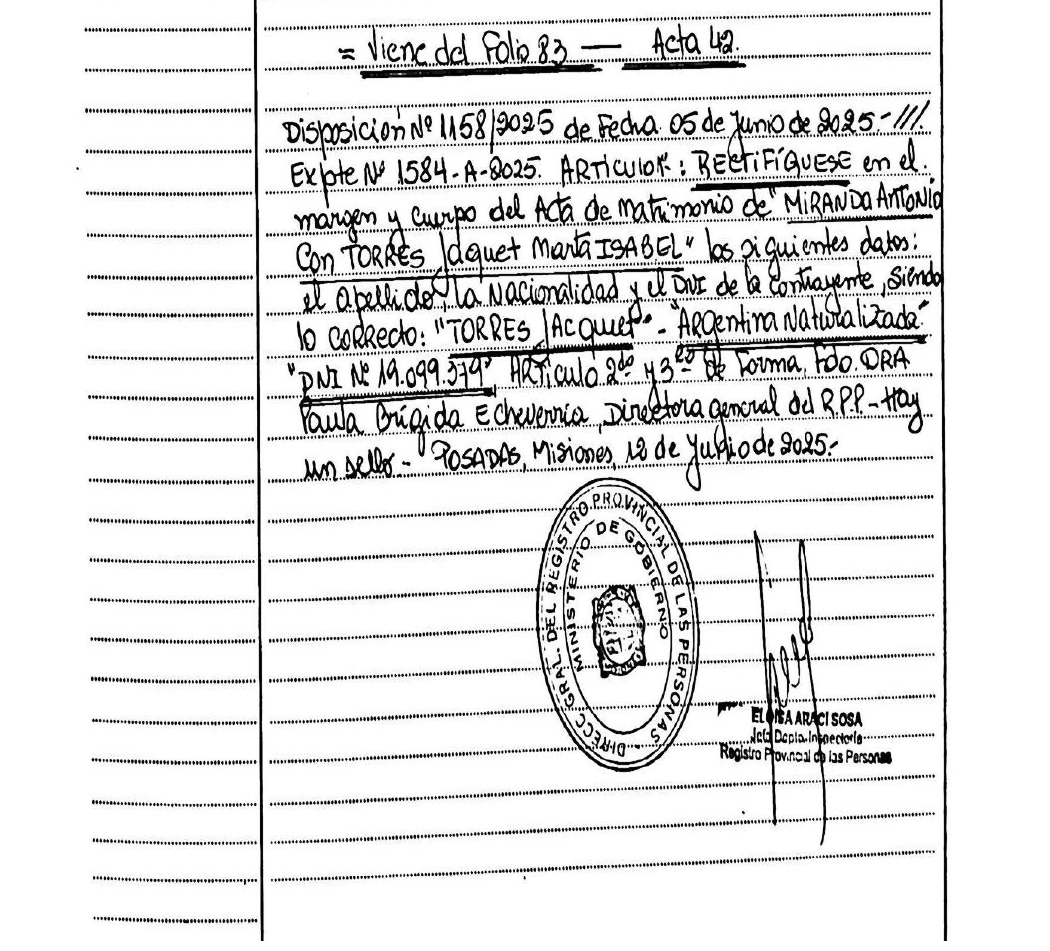 = Viene del Folio 83 — Acta 42.
Disposición Nº 1158/2025 de Fecha 05 de Junio de 2025.-///.
Expte Nº 1584-A-2025. ARTÍCULO 1º: RECTIFÍQUESE en el
margen y cuerpo del Acta de matrimonio de "MIRANDA ANTONIO
Con TORRES Jaquet Marta ISABEL" los siguientes datos:
el apellido, la Nacionalidad y el DNI de la contrayente, siendo
lo correcto: "TORRES JACQUET" - "ARgentina Naturalizada"
"DNI Nº 19.099.379" ARTículo 2do y 3ero de Forma. Fdo. DRA
Paula Brígida Echeverria, Directora general del R.P.P. - Hay
un sello - POSADAS, Misiones, 12 de Julio de 2025.-
DIRECC. GRAL. DEL REGISTRO PROVINCIAL DE LAS PERSONAS
MINISTERIO DE GOBIERNO
ELOISA ARACI SOSA
Jefa Depto. Inspectoría
Registro Provincial de las Personas